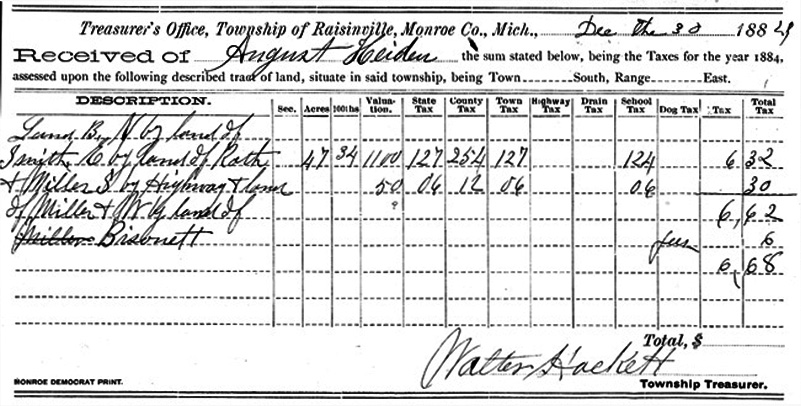 Treasurer's Office, Township of Raisinville, Monroe Co., Mich., Dec the 30 1884
Received of August Heiden the sum stated below, being the Taxes for the year 1884,
assessed upon the following described tract of land, situate in said township, being Town South, Range East.
DESCRIPTION. Sec. Acres 100ths Valuation. State Tax County Tax Town Tax Highway Tax Drain Tax School Tax Dog Tax Tax Total Tax
Land B, N by land of
Smith E by land of Roth 47 34 1100 127 254 127 124 6 32
& Miller S by Highway & land 50 06 12 06 06 30
of Miller & W by land of 6,62
Miller Bisonett fees 6
6,68
Total, $
Walter Hackett
MONROE DEMOCRAT PRINT. Township Treasurer.